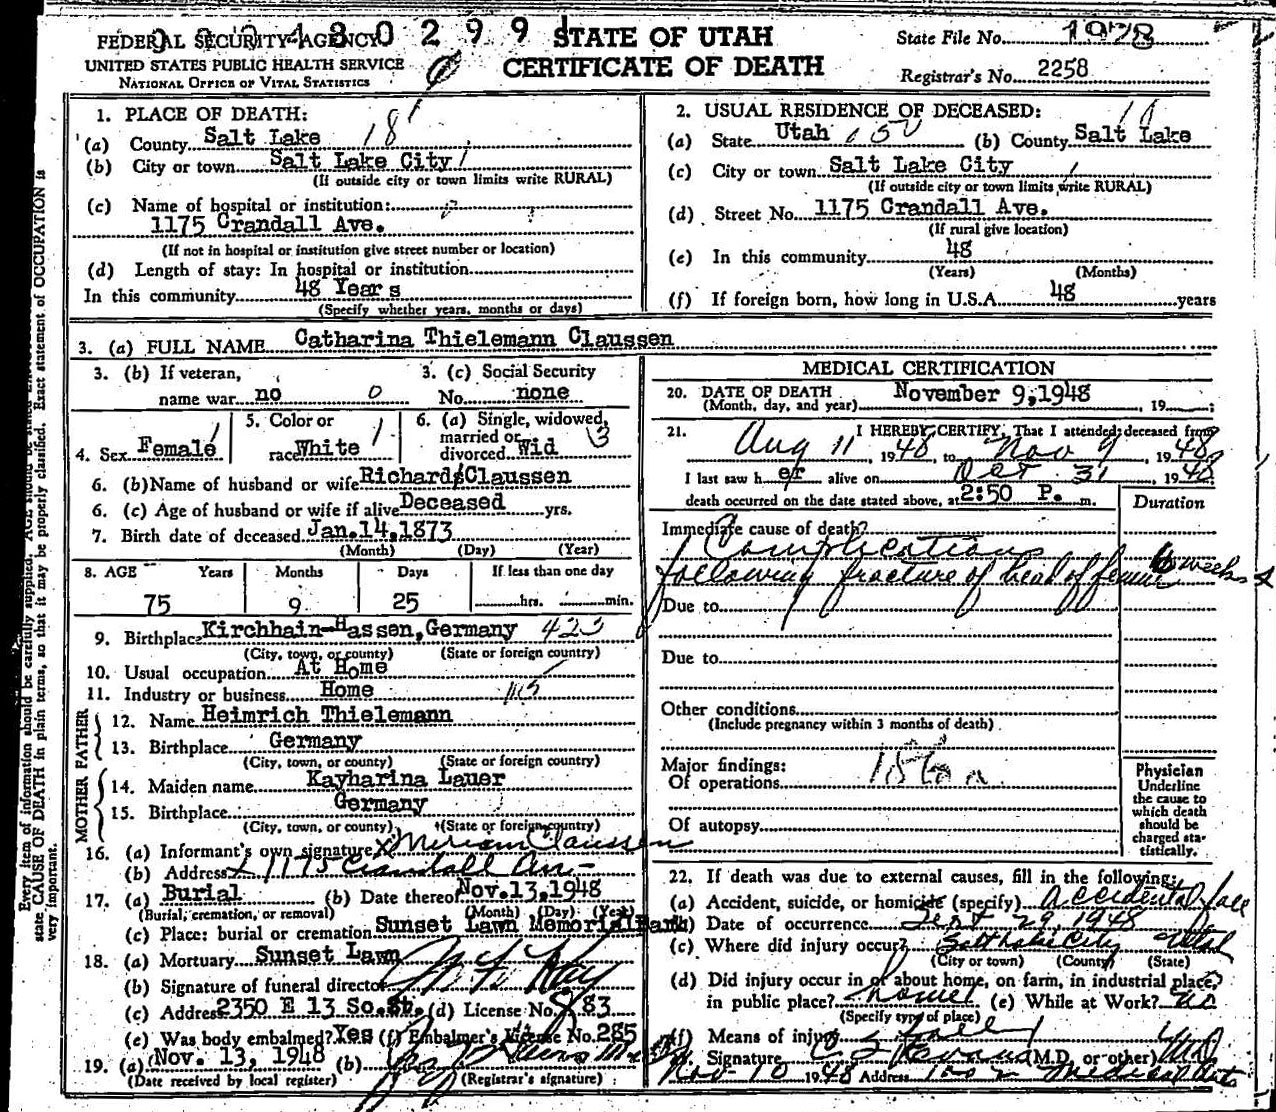 FEDERAL SECURITY AGENCY
0 2 9 9 1
STATE OF UTAH
State File No. 1978
UNITED STATES PUBLIC HEALTH SERVICE
CERTIFICATE OF DEATH
NATIONAL OFFICE OF VITAL STATISTICS
Registrar's No. 2258
Every item of information should be carefully supplied. AGE should be properly classified. Exact statement of OCCUPATION is
state CAUSE OF DEATH in plain terms, so that it may be
very important.
1. PLACE OF DEATH:
(a) County Salt Lake 18
(b) City or town Salt Lake City
(If outside city or town limits write RURAL)
(c) Name of hospital or institution:
1175 Crandall Ave.
(If not in hospital or institution give street number or location)
(d) Length of stay: In hospital or institution
In this community 48 Years
(Specify whether years, months or days)
2. USUAL RESIDENCE OF DECEASED:
(a) State Utah (b) County Salt Lake
(c) City or town Salt Lake City
(If outside city or town limits write RURAL)
(d) Street No. 1175 Crandall Ave.
(If rural give location)
(e) In this community 48
(Years) (Months)
(f) If foreign born, how long in U.S.A. 48 years
3. (a) FULL NAME Catharina Thielemann Claussen
3. (b) If veteran, name war no 0
3. (c) Social Security No. none
4. Sex Female 1
5. Color or race White 1
6. (a) Single, widowed, married or divorced Wid 3
6. (b) Name of husband or wife Richard Claussen
6. (c) Age of husband or wife if alive Deceased yrs.
7. Birth date of deceased Jan. 14, 1873
(Month) (Day) (Year)
8. AGE Years Months Days If less than one day
75 9 25 hrs. min.
9. Birthplace Kirchhain-Hassen, Germany 423
(City, town, or county) (State or foreign country)
10. Usual occupation At Home
11. Industry or business Home
FATHER
12. Name Heimrich Thielemann
13. Birthplace Germany
(City, town, or county) (State or foreign country)
MOTHER
14. Maiden name Kayharina Lauer
15. Birthplace Germany
(City, town, or county) (State or foreign country)
16. (a) Informant's own signature X Miriam Claussen
(b) Address 1175 Crandall Ave
17. (a) Burial (b) Date thereof Nov. 13, 1948
(Burial, cremation, or removal) (Month) (Day) (Year)
(c) Place: burial or cremation Sunset Lawn Memorial Park
18. (a) Mortuary Sunset Lawn
(b) Signature of funeral director
(c) Address 2350 E 13 So. St. (d) License No.
(e) Was body embalmed? Yes (f) Embalmer's License No. 285
19. (a) Nov. 13, 1948 (b)
(Date received by local register) (Registrar's signature)
MEDICAL CERTIFICATION
20. DATE OF DEATH November 9, 1948 , 19 ;
(Month, day, and year)
21. I HEREBY CERTIFY, That I attended deceased from
Aug 11 1948, to Nov 9 1948;
I last saw h er alive on Oct 31, 1948
death occurred on the date stated above, at 2:50 P. m.
Duration
Immediate cause of death?
Complications
following fracture of head of femur 6 weeks
Due to
Due to
Other conditions
(Include pregnancy within 3 months of death)
Major findings:
Of operations
Of autopsy
Physician
Underline
the cause to
which death
should be
charged sta-
tistically.
22. If death was due to external causes, fill in the following:
(a) Accident, suicide, or homicide (specify) Accidental fall
(b) Date of occurrence Sept 29, 1948
(c) Where did injury occur? Salt Lake City Utah
(City or town) (County) (State)
(d) Did injury occur in or about home, on farm, in industrial place,
in public place? home (e) While at Work? no
(Specify type of place)
(f) Means of injury fall
Signature (M.D. or other) MD
Nov 10 1948 Address 1002 Medical Arts